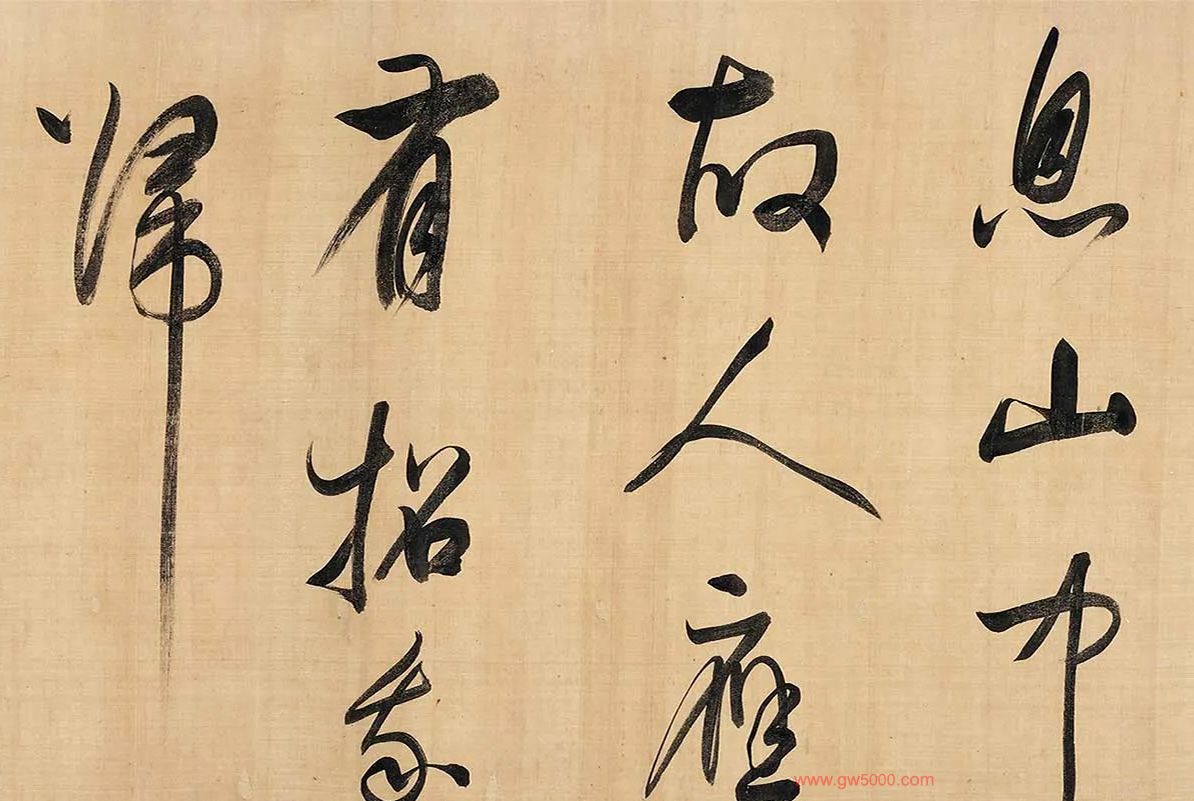 息山中
故人應
有招我
歸
www.gw5000.com